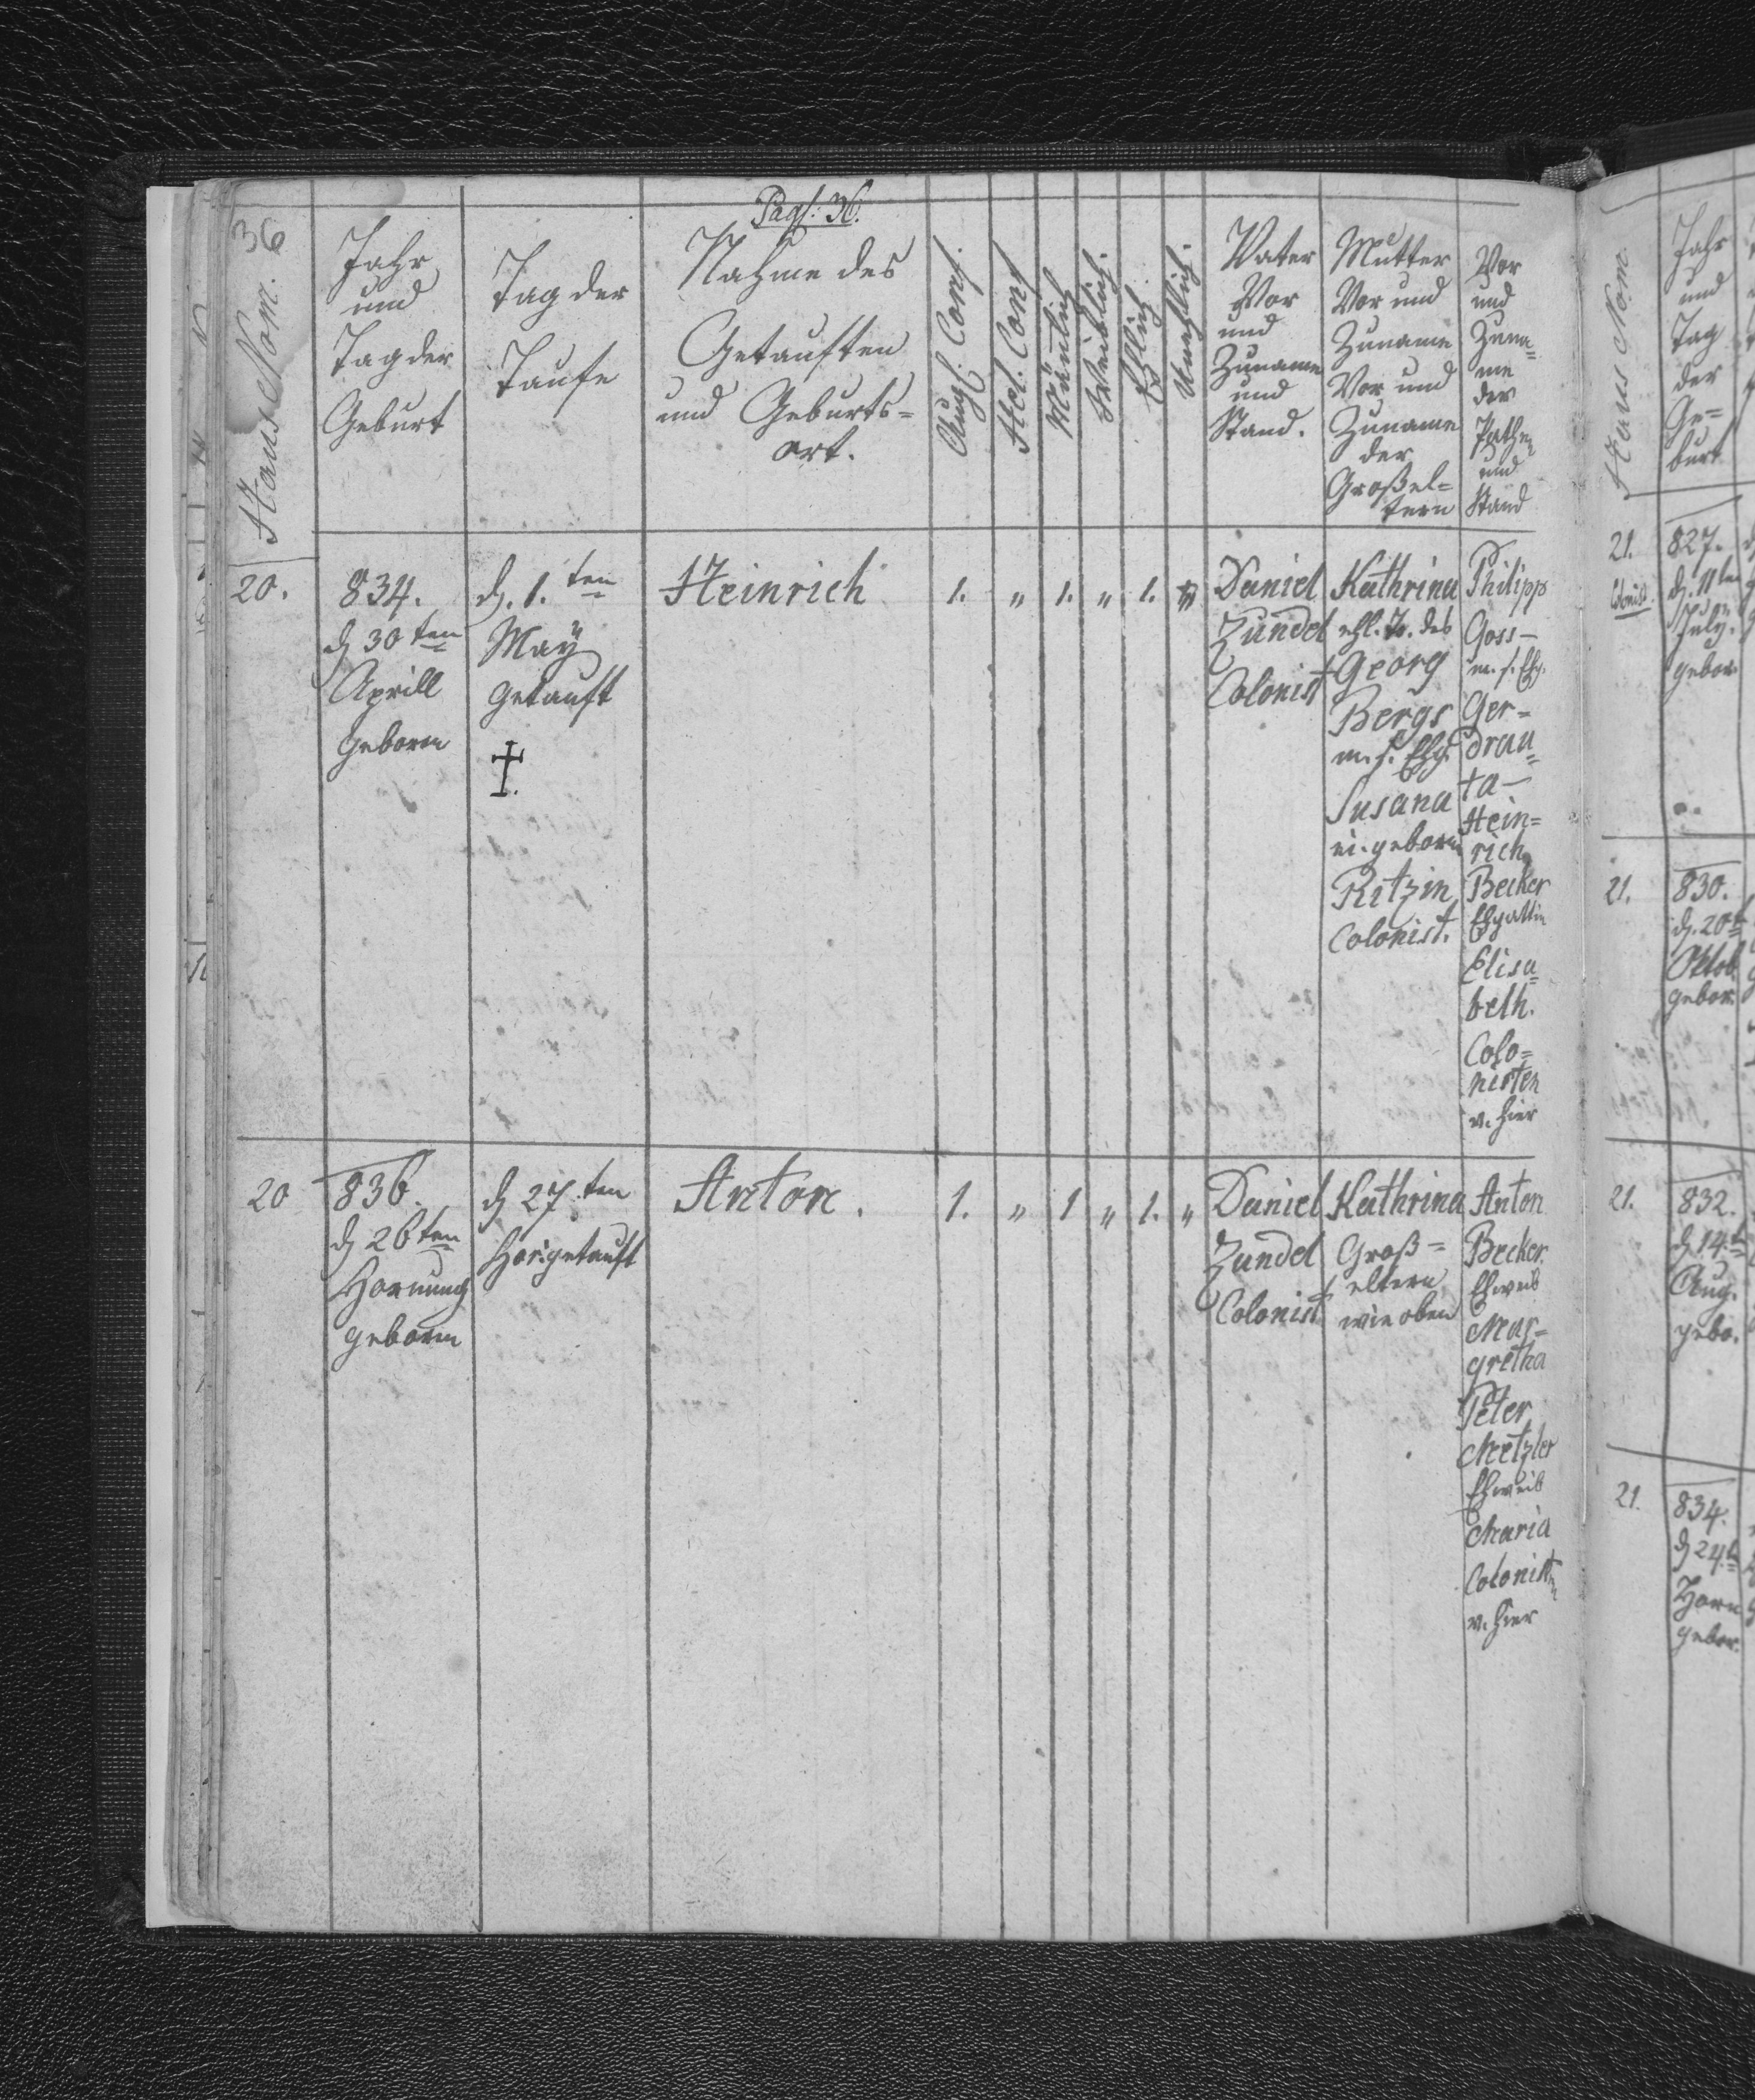 36
Pags: 36.
Haus Nom.
Jahr
und
Tag der
Geburt
Tag der
Taufe
Nahme des
Getauften
und Geburts=
ort.
Augs. Conf.
Hel. Conf
Mänlich
Weiblich.
Ehlich
Unehlich.
Vater
Vor
und
Zuname
und
Stand.
Mutter
Vor und
Zuname
Vor und
Zuname
der
Großel=
tern
Vor
und
Zuna=
me
der
Pathen
und
Stand
20.
834.
d. 30ten
Aprill
geboren
d. 1.ten
May
getauft
†.
Heinrich
1. " 1. " 1. "
Daniel
Zundel
Colonist
Kathrina
ehl. T. des
Georg
Bergs
m. s. Ehg.
Susana
ei. geborne
Ritzin
Colonist.
Philipp
Goss-
m. s. Ehg.
Ger=
drau=
ta-
Hein=
rich
Becker
Ehgattin
Elisa=
beth.
Colo=
nisten
v. hier
20
836.
d 26ten
Hornung
geboren
d 27.ten
Hor: getauft
Anton.
1. " 1 " 1. "
Daniel
Zundel
Colonist
Kathrina
Groß=
eltern
wie oben
Anton
Becker.
Ehweib
Mar=
gretha
Peter
Metzler
Ehweib
Maria
Colonistn
v. hier
Haus Nom
Jahr
und
Tag
der
Ge=
burt
21.
827.
d. 11ten
July.
gebor
21.
830.
d. 20t
Oktob.
gebor.
21.
832.
d 14.t
Aug.
gebo.
21.
834.
d 24.t
Horn
gebor.